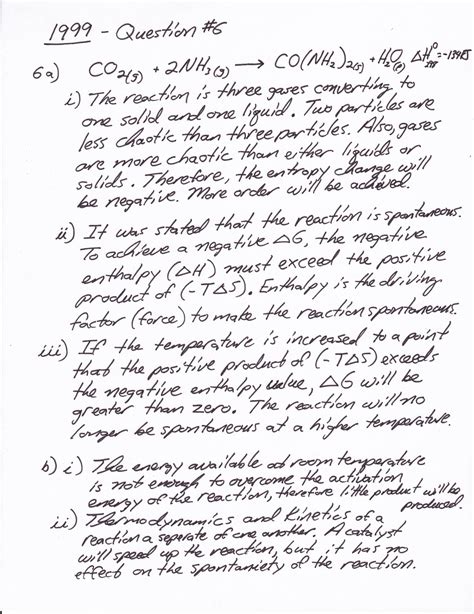 1999 - Question #6
6a) CO2(g) + 2NH3(g) → CO(NH2)2(s) + H2O(l) ΔH°298 = -134KJ
i) The reaction is three gases converting to
one solid and one liquid. Two particles are
less chaotic than three particles. Also, gases
are more chaotic than either liquids or
solids. Therefore, the entropy change will
be negative. More order will be achieved.
ii) It was stated that the reaction is spontaneous.
To achieve a negative ΔG, the negative
enthalpy (ΔH) must exceed the positive
product of (-TΔS). Enthalpy is the driving
factor (force) to make the reaction spontaneous.
iii) If the temperature is increased to a point
that the positive product of (-TΔS) exceeds
the negative enthalpy value, ΔG will be
greater than zero. The reaction will no
longer be spontaneous at a higher temperature.
b) i) The energy available ad room temperature
is not enough to overcome the activation
energy of the reaction, therefore little product will be
produced.
ii) Thermodynamics and Kinetics of a
reaction a separate of one another. A catalyst
will speed up the reaction, but it has no
effect on the spontaniety of the reaction.